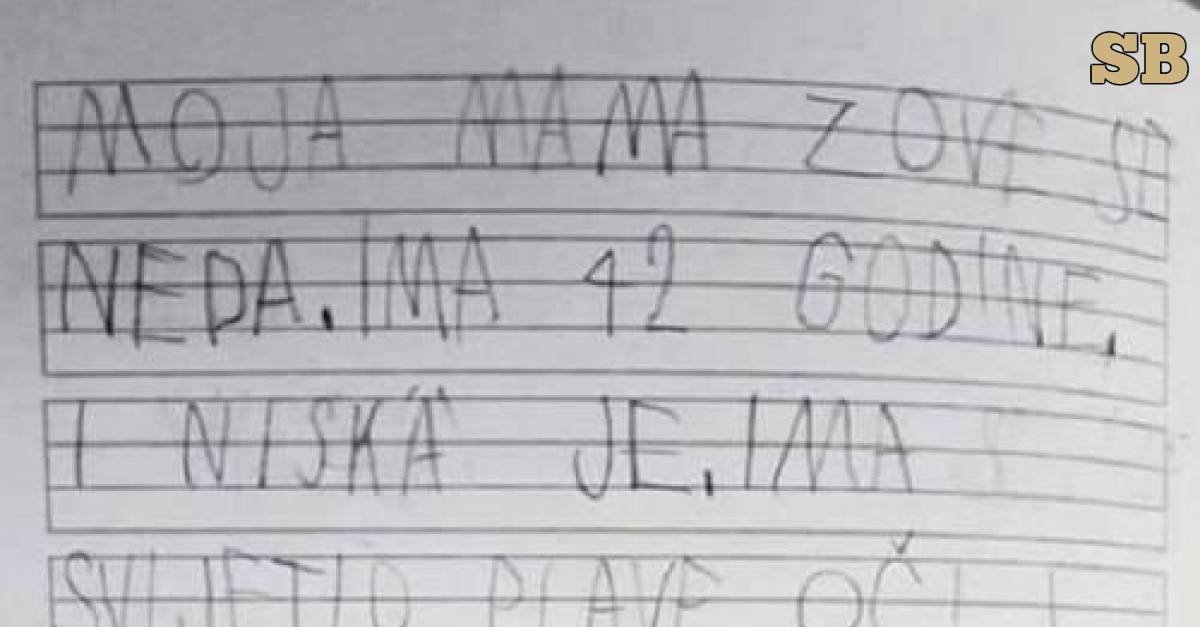 SB
MOJA MAMA ZOVE SE
NEDA. IMA 42 GODINE.
I NISKA JE. IMA
SVIJETLO PLAVE OČI I